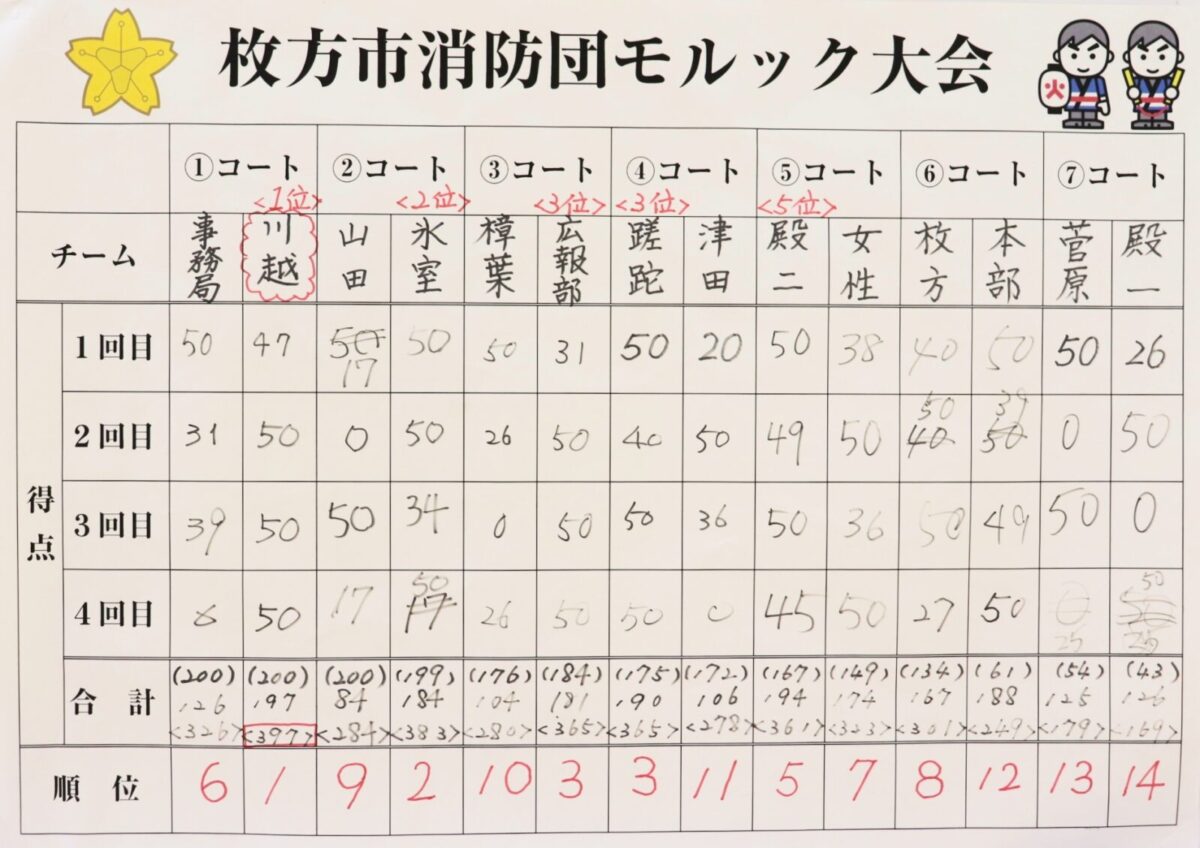 枚方市消防団モルック大会
火
①コート ②コート ③コート ④コート ⑤コート ⑥コート ⑦コート
<1位> <2位> <3位> <3位> <5位>
チーム 事務局 川越 山田 氷室 樟葉 広報部 蹉跎 津田 殿二 女性 枚方 本部 菅原 殿一
得点
1回目 50 47 50 17 50 50 31 50 20 50 38 40 50 50 26
2回目 31 50 0 50 26 50 40 50 49 50 50 40 39 50 0 50
3回目 39 50 50 34 0 50 50 36 50 36 50 49 50 0
4回目 6 50 17 50 17 26 50 50 0 45 50 27 50 0 25 50 25
合計 (200) (200) (200) (199) (176) (184) (175) (172) (167) (149) (134) (61) (54) (43)
126 197 84 184 104 181 190 106 194 174 167 188 125 126
<326> <397> <284> <383> <280> <365> <365> <278> <361> <323> <301> <249> <179> <169>
順位 6 1 9 2 10 3 3 11 5 7 8 12 13 14